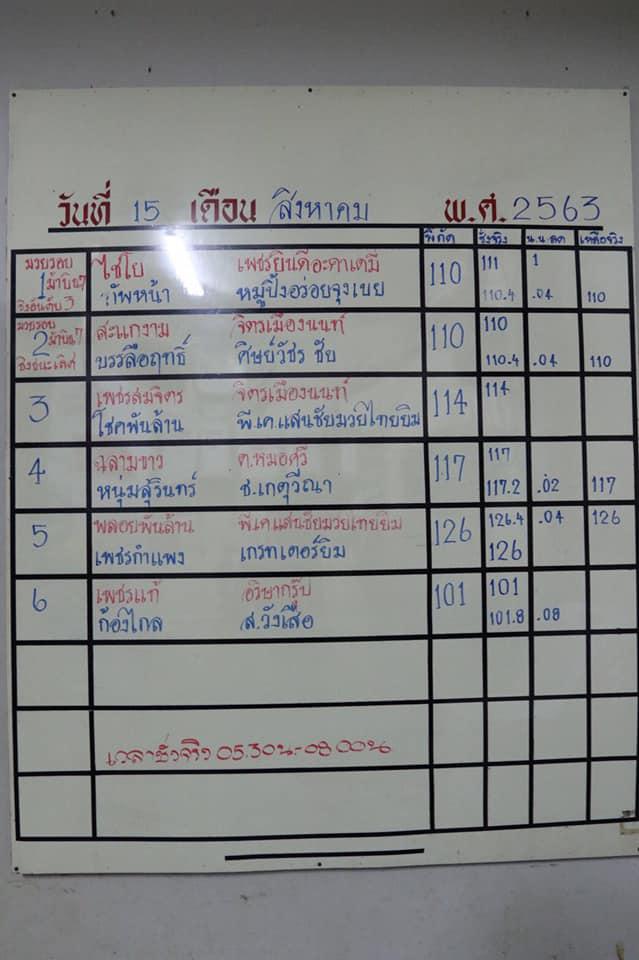 วันที่ 15 เดือน สิงหาคม พ.ศ. 2563
พิกัด ชั่งจริง น.น.ลด เหลือจริง
มวยรอบ ไชโย เพชรยินดีอะคาเดมี 110 111 1
1 ม้าบิน7
ชิงอันดับ 3 ทัพหน้า หมูปิ้งอร่อยจุงเบย 110.4 .04 110
มวยรอบ สะแกงาม จิตรเมืองนนท์ 110 110
2 ม้าบิน7
ชิงชนะเลิศ บรรลือฤทธิ์ ศิษย์วัชรชัย 110.4 .04 110
3 เพชรสมจิตร จิตรเมืองนนท์ 114 114
โชคพันล้าน พี.เค.แสนชัยมวยไทยยิม
4 ฉลามขาว ต.หมอศรี 117 117
หนุ่มสุรินทร์ ช.เกตุวีณา 117.2 .02 117
5 พลอยพันล้าน พี.เค.แสนชัยมวยไทยยิม 126 126.4 .04 126
เพชรกำแพง เกรทเตอร์ยิม 126
6 เพชรแท้ อริษากรุ๊ป 101 101
ก้องไกล ส.วังเสือ 101.8 .08
เวลาชั่งจริง 05.30น-08.00น